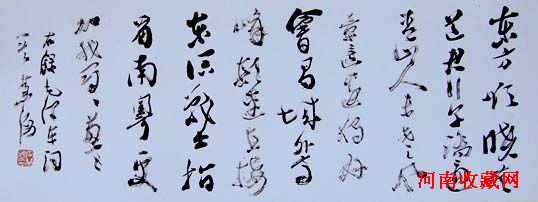 东方欲晓莫
道君行早踏遍
青山人未老风
景这边独好
會昌城外高
峰颠连直接
东溟战士指
看南粤更
加郁々葱々
右录毛泽东词
河南收藏网